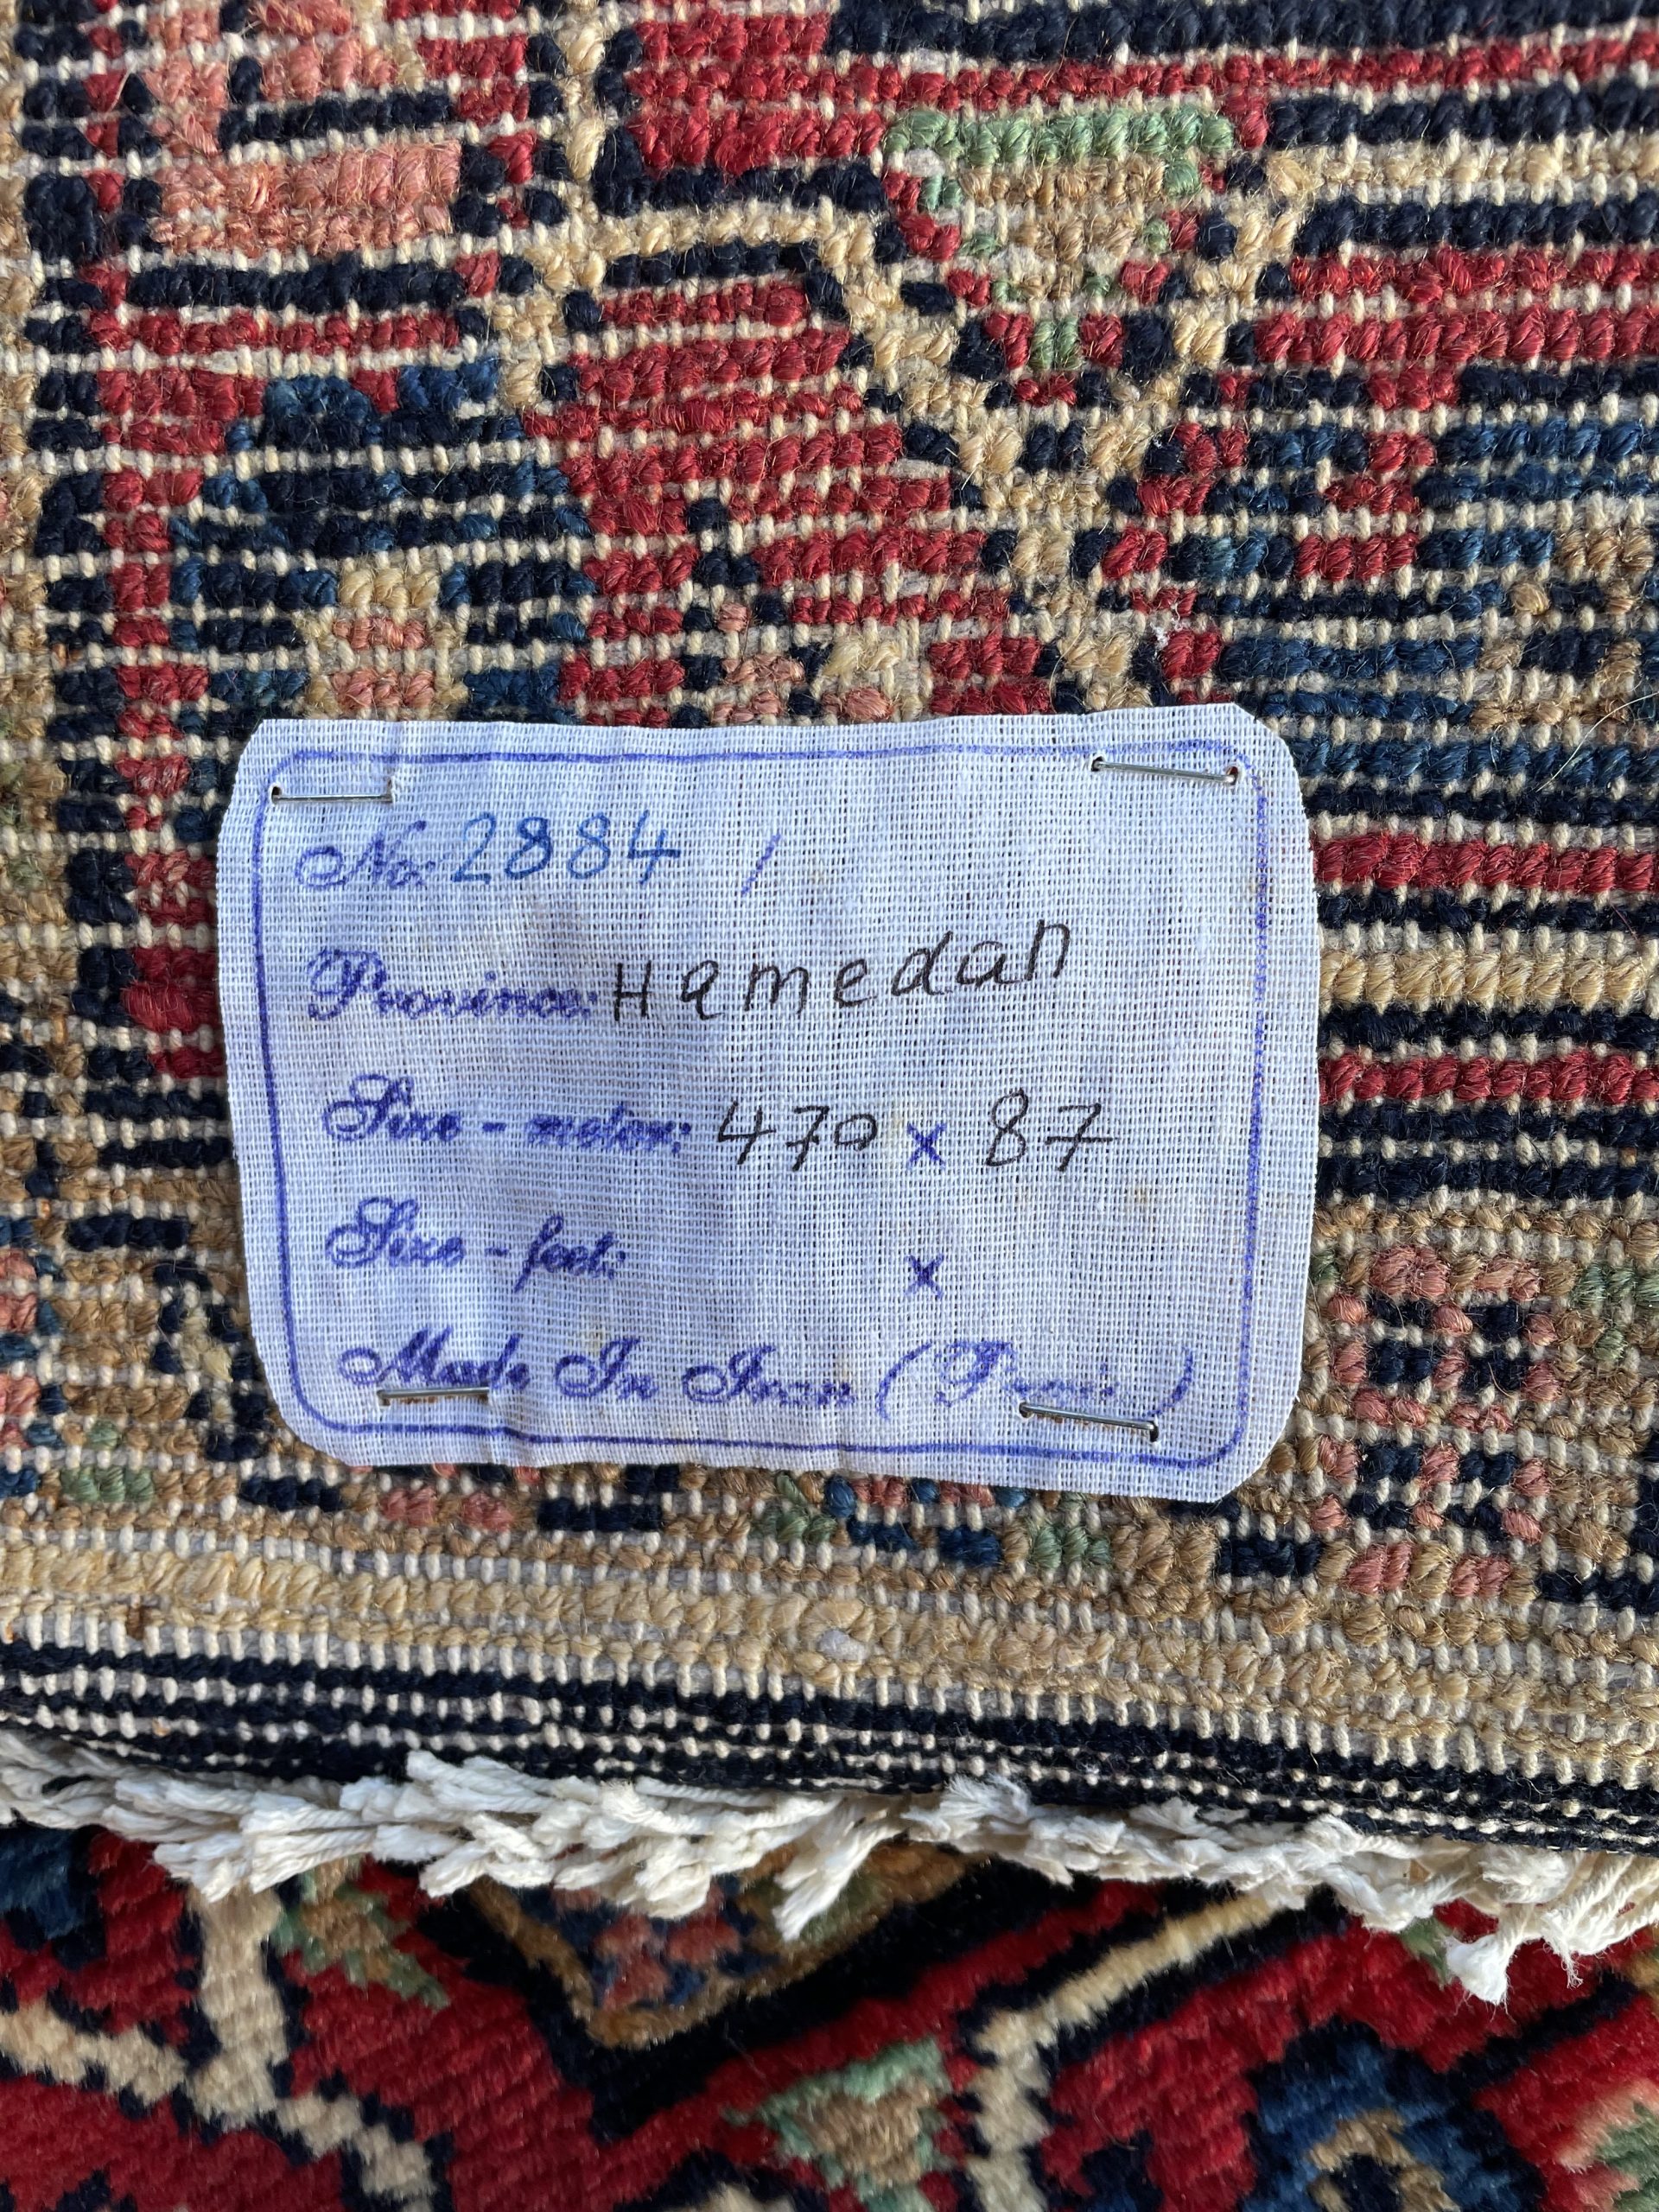 No: 2884 /
Province: Hamedan
Size - meter: 470 x 87
Size - feet: x
Made In Iran ( )